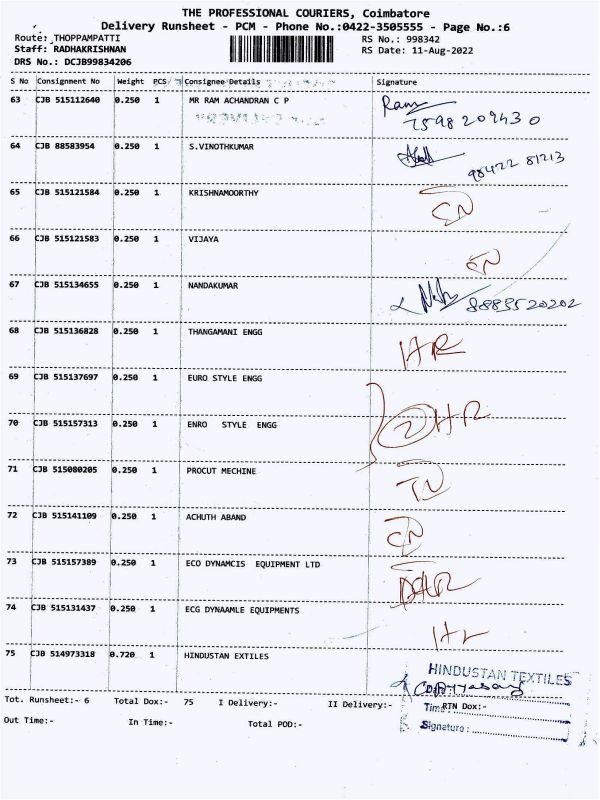 THE PROFESSIONAL COURIERS, Coimbatore
Delivery Runsheet - PCM - Phone No.:0422-3505555 - Page No.:6
Route: THOPPAMPATTI
RS No.: 998342
Staff: RADHAKRISHNAN
RS Date: 11-Aug-2022
DRS No.: DCJB99834206
S No Consignment No Weight PCS Consignee Details Signature
63 CJB 515112640 0.250 1 MR RAM ACHANDRAN C P Ram
7598209430
64 CJB 88583954 0.250 1 S.VINOTHKUMAR
98422 81213
65 CJB 515121584 0.250 1 KRISHNAMOORTHY
66 CJB 515121583 0.250 1 VIJAYA
67 CJB 515134655 0.250 1 NANDAKUMAR
68 CJB 515136828 0.250 1 THANGAMANI ENGG HR
69 CJB 515137697 0.250 1 EURO STYLE ENGG
2 HR
70 CJB 515157313 0.250 1 ENRO STYLE ENGG
71 CJB 515080205 0.250 1 PROCUT MECHINE
72 CJB 515141109 0.250 1 ACHUTH ABAND
73 CJB 515157389 0.250 1 ECO DYNAMCIS EQUIPMENT LTD
74 CJB 515131437 0.250 1 ECG DYNAAMLE EQUIPMENTS
75 CJB 514973318 0.720 1 HINDUSTAN EXTILES
HINDUSTAN TEXTILES
Tot. Runsheet:- 6 Total Dox:- 75 I Delivery:- II Delivery:- RTN Dox:-
Time
Out Time:- In Time:- Total POD:-
Signature :